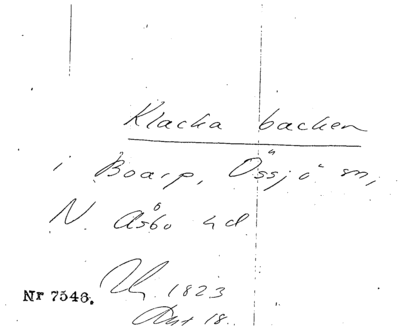 Klacka backen
i Boarp, Össjö sn,
N. Åsbo hd
1823
18
Nr 7546.